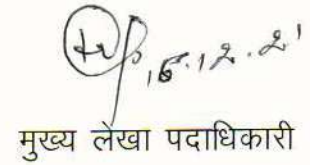 15.12.21
मुख्य लेखा पदाधिकारी